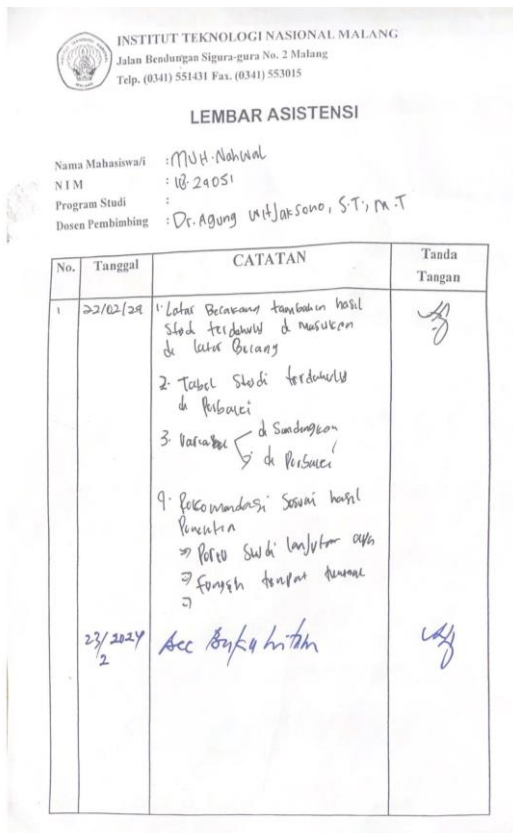 INSTITUT TEKNOLOGI NASIONAL MALANG
Jalan Bendungan Sigura-gura No. 2 Malang
Telp. (0341) 551431 Fax. (0341) 553015
LEMBAR ASISTENSI
Nama Mahasiswa/i : MUH. Nahwal
NIM : 18.24051
Program Studi :
Dosen Pembimbing : Dr. Agung Witjaksono, S.T., M.T
No. Tanggal CATATAN Tanda Tangan
1 22/02/24 1. Latar Belakang tambahin hasil
Studi terdahulu di masukan
di latar
2. Tabel Studi terdahulu
di Perbaiki
3. Variabel di
di Perbaiki
4. Rekomendasi Sesuai hasil
Studi lanjutan
tempat
23/2 2024 Acc Buku hitam